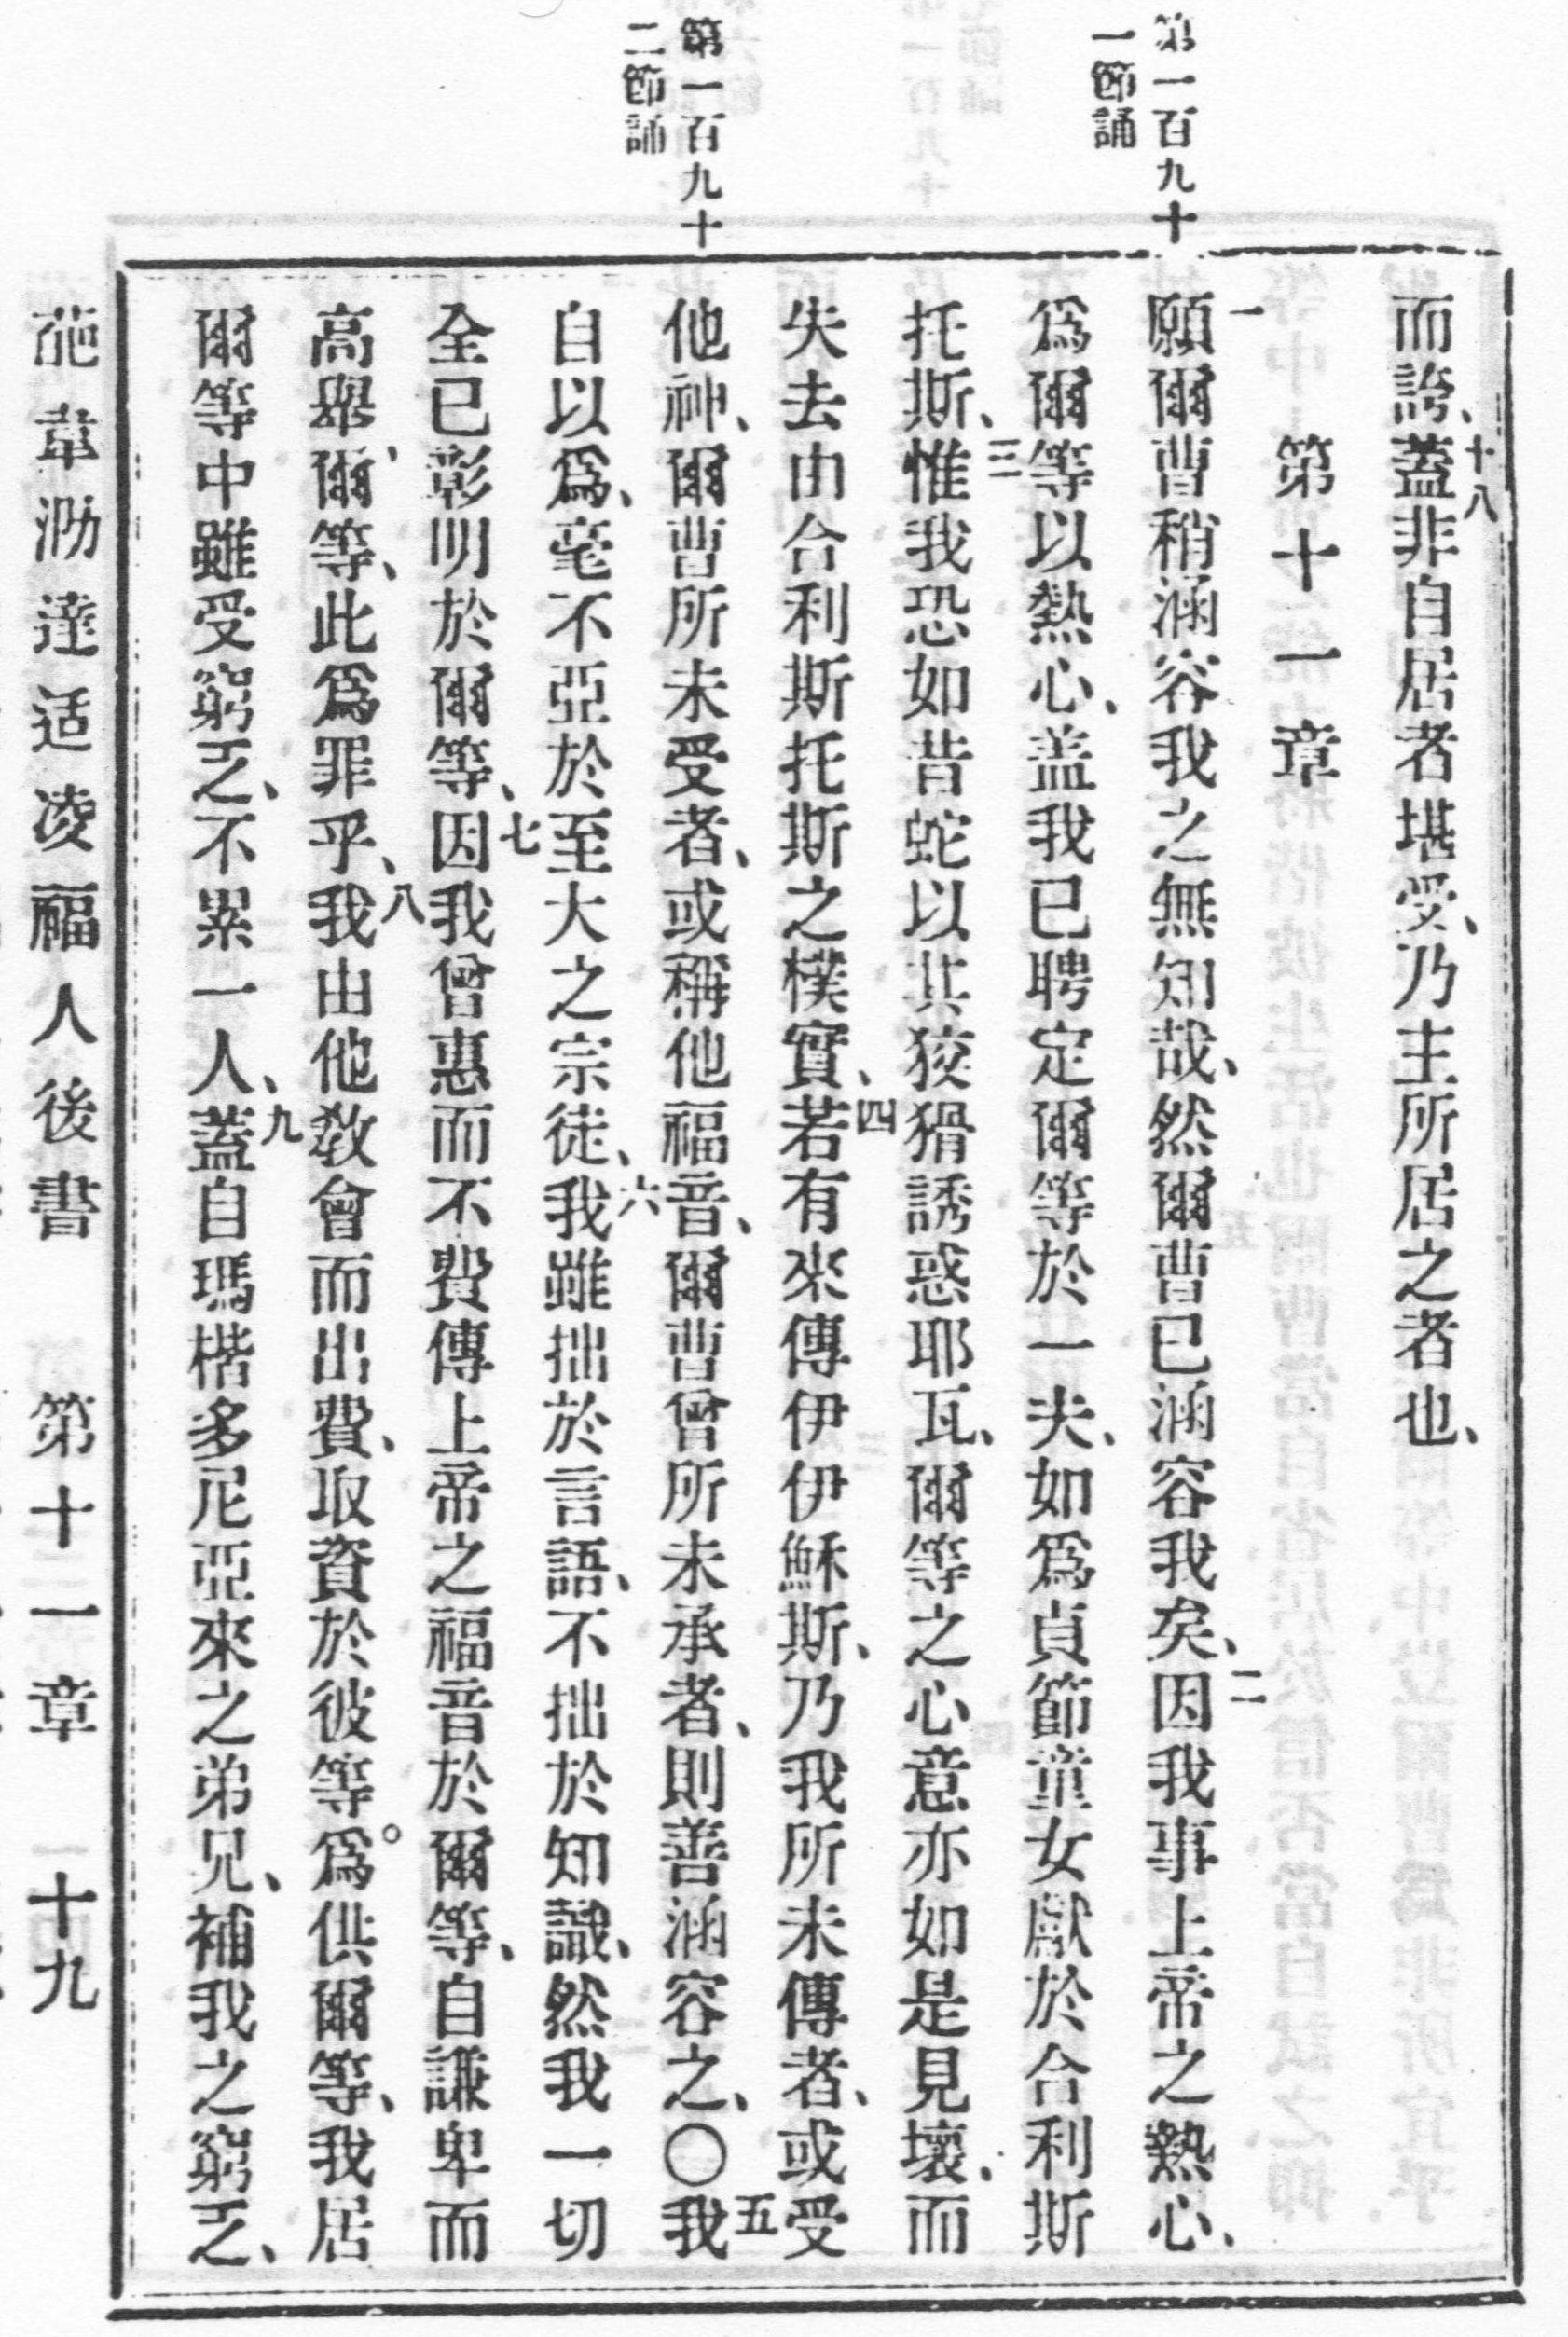 第一百九十
一節誦
第一百九十
二節誦
而誇、十八蓋非自居者堪受、乃主所居之者也、
第十一章
一願爾曹稍涵容我之無知哉、然爾曹已涵容我矣、二因我事上帝之熱心、
爲爾等以熱心、盖我已聘定爾等於一夫、如爲貞節童女獻於合利斯
托斯、三惟我恐如昔蛇以其狡猾誘惑耶瓦、爾等之心意亦如是見壞、而
失去由合利斯托斯之樸實、四若有來傳伊伊穌斯、乃我所未傳者、或受
他神、爾曹所未受者、或稱他福音、爾曹曾所未承者、則善涵容之、〇五我
自以爲、毫不亞於至大之宗徒、六我雖拙於言語、不拙於知識、然我一切
全已彰明於爾等、七因我曾惠而不費傳上帝之福音於爾等、自謙卑而
高舉、爾等、此爲罪乎、八我由他敎會而出費、取資於彼等。爲供爾等、我居
爾等中雖受窮乏、不累一人、九蓋自瑪楷多尼亞來之弟兄、補我之窮乏、
適凌福人後書 第十一章 十九